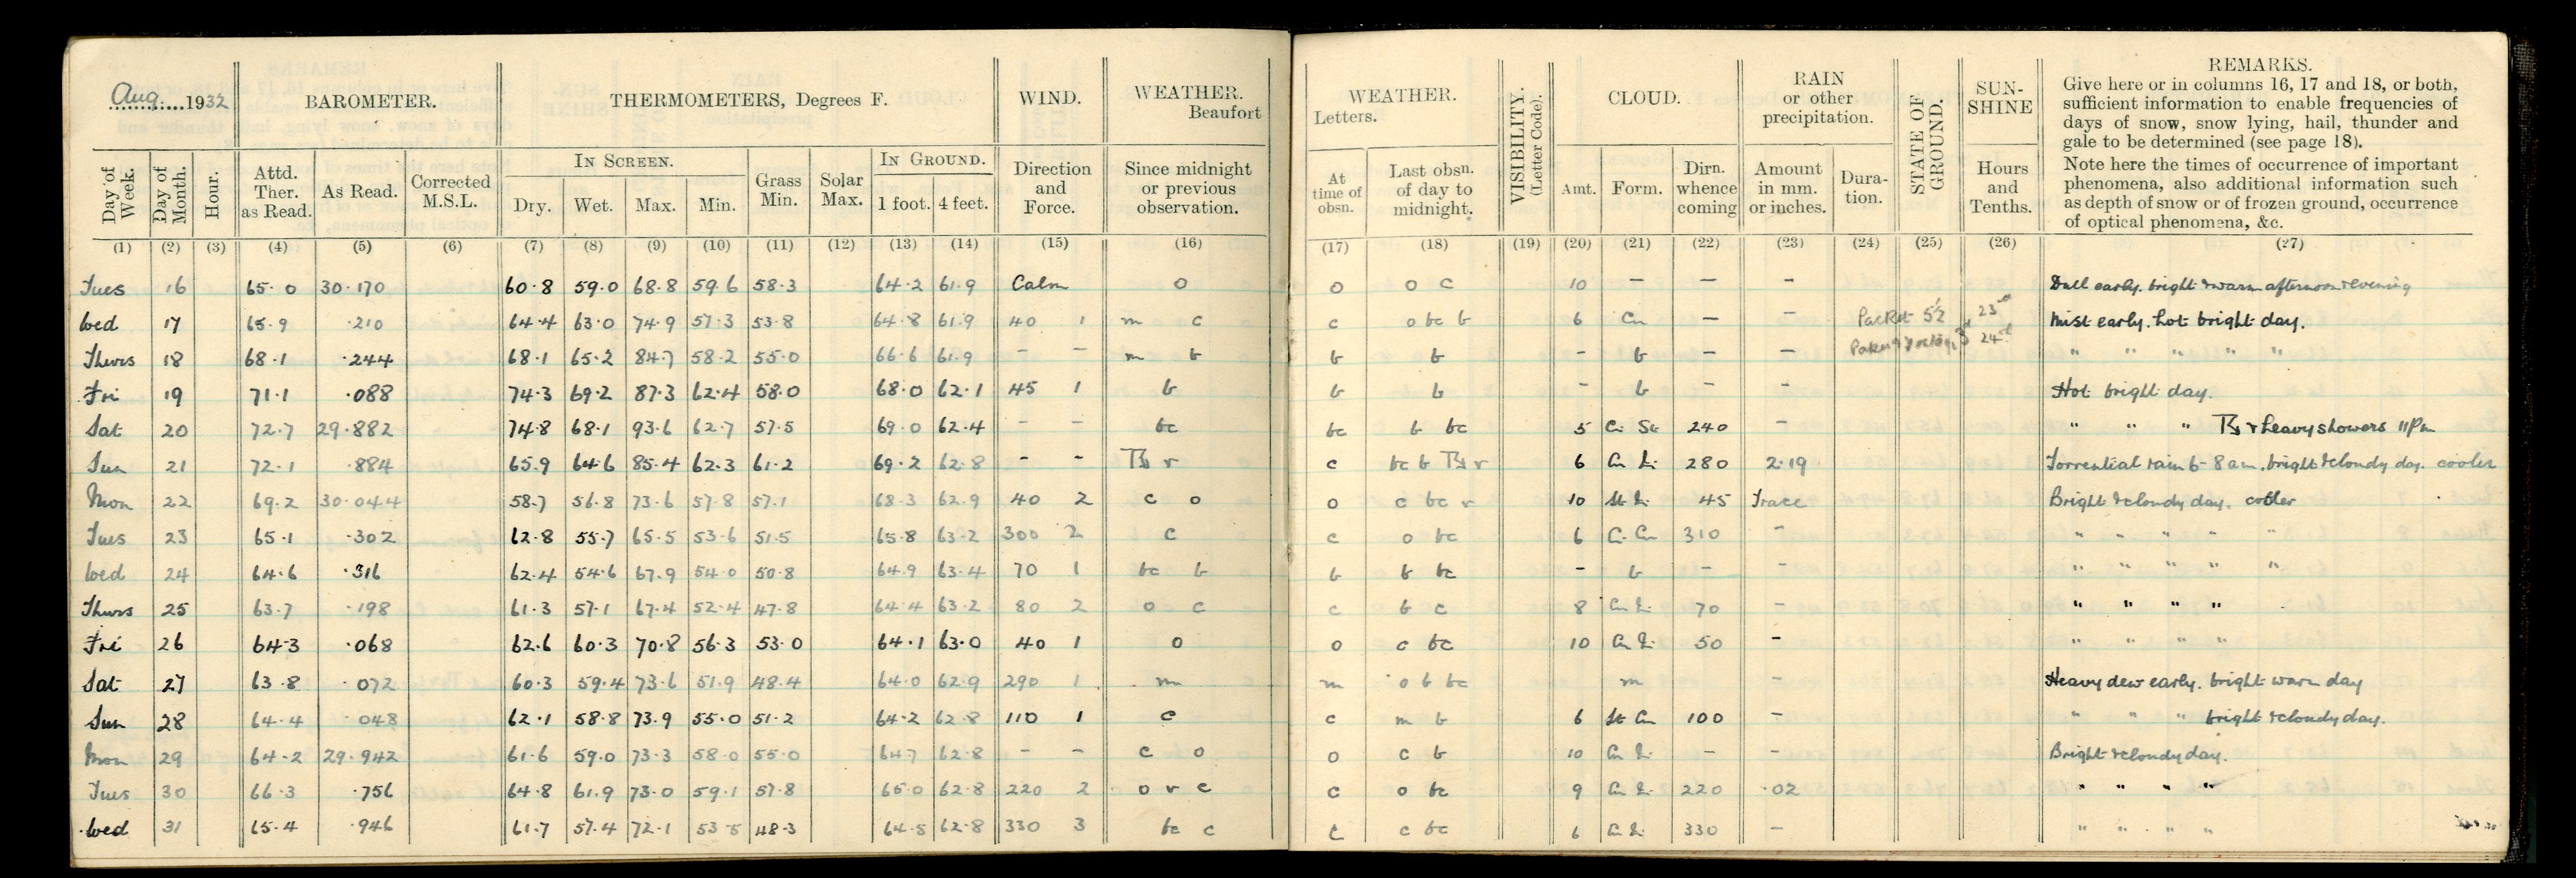 Aug. 1932
BAROMETER.
THERMOMETERS, Degrees F.
WIND.
WEATHER.
Beaufort
Day of Week.
Day of Month.
Hour.
Attd. Ther. as Read.
As Read.
Corrected M.S.L.
IN SCREEN.
Dry. Wet. Max. Min.
Grass Min.
Solar Max.
IN GROUND.
1 foot. 4 feet.
Direction and Force.
Since midnight or previous observation.
(1) (2) (3) (4) (5) (6) (7) (8) (9) (10) (11) (12) (13) (14) (15) (16)
WEATHER.
Letters.
At time of obsn.
Last obsn. of day to midnight.
VISIBILITY. (Letter Code).
CLOUD.
Amt. Form. Dirn. whence coming
RAIN
or other
precipitation.
Amount in mm. or inches.
Dura-tion.
STATE OF GROUND.
SUN-SHINE
Hours and Tenths.
REMARKS.
Give here or in columns 16, 17 and 18, or both,
sufficient information to enable frequencies of
days of snow, snow lying, hail, thunder and
gale to be determined (see page 18).
Note here the times of occurrence of important
phenomena, also additional information such
as depth of snow or of frozen ground, occurrence
of optical phenomena, &c.
(17) (18) (19) (20) (21) (22) (23) (24) (25) (26) (27)
Tues 16 65.0 30.170 60.8 59.0 68.8 59.6 58.3 64.2 61.9 Calm o o o c 10 — — — Dull early. bright & warm afternoon & evening
Wed 17 65.9 .210 64.4 63.0 74.9 57.3 53.8 64.8 61.9 40 1 m c c o bc b 6 Cu — — Packet 5½ 23rd Mist early. hot bright day.
Thurs 18 68.1 .244 68.1 65.2 84.7 58.2 55.0 66.6 61.9 – – m b b b – b — — 24th " " " " "
Fri 19 71.1 .088 74.3 69.2 87.3 62.4 58.0 68.0 62.1 45 1 b b b – b – – Hot bright day.
Sat 20 72.7 29.882 74.8 68.1 93.6 62.7 57.5 69.0 62.4 – – bc bc b bc 5 Ci St 240 – " " " & heavy showers 11 Pm
Sun 21 72.1 .884 65.9 64.6 85.4 62.3 61.2 69.2 62.8 – – r c bc b r 6 Cu 280 2.19 Torrential rain 6-8 am. bright & cloudy day. cooler
Mon 22 69.2 30.044 58.7 56.8 73.6 57.8 57.1 68.3 62.9 40 2 c o o c bc r 10 St 45 Trace Bright & cloudy day. cooler
Tues 23 65.1 .302 62.8 55.7 65.5 53.6 51.5 65.8 63.2 300 2 c c o bc 6 Ci Cu 310 – " " " " "
Wed 24 64.6 .316 62.4 54.6 67.9 54.0 50.8 64.9 63.4 70 1 bc b b b bc – b – – " " " " "
Thurs 25 63.7 .198 61.3 57.1 67.4 52.4 47.8 64.4 63.2 80 2 o c c b c 8 Cu 70 – " " " "
Fri 26 64.3 .068 62.6 60.3 70.8 56.3 53.0 64.1 63.0 40 1 o o c bc 10 Cu 50 – " " " "
Sat 27 63.8 .072 60.3 59.4 73.6 51.9 48.4 64.0 62.9 290 1 m m o b bc m – Heavy dew early. bright warm day
Sun 28 64.4 .048 62.1 58.8 73.9 55.0 51.2 64.2 62.8 110 1 c c m b 6 St Cu 100 – " " " bright & cloudy day.
Mon 29 64.2 29.942 61.6 59.0 73.3 58.0 55.0 64.7 62.8 – – c o o c b 10 Cu – – Bright & cloudy day.
Tues 30 66.3 .756 64.8 61.9 73.0 59.1 57.8 65.0 62.8 220 2 o r c c o bc 9 Cu 220 .02 " " " "
Wed 31 65.4 .946 61.7 57.4 72.1 53.5 48.3 64.5 62.8 330 3 bc c c c bc 6 Cu 330 – " " " "